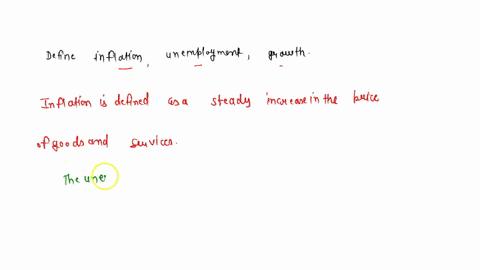 Define inflation, unemployment, growth.
Inflation is defined as a steady increase in the price
of goods and services.
The une